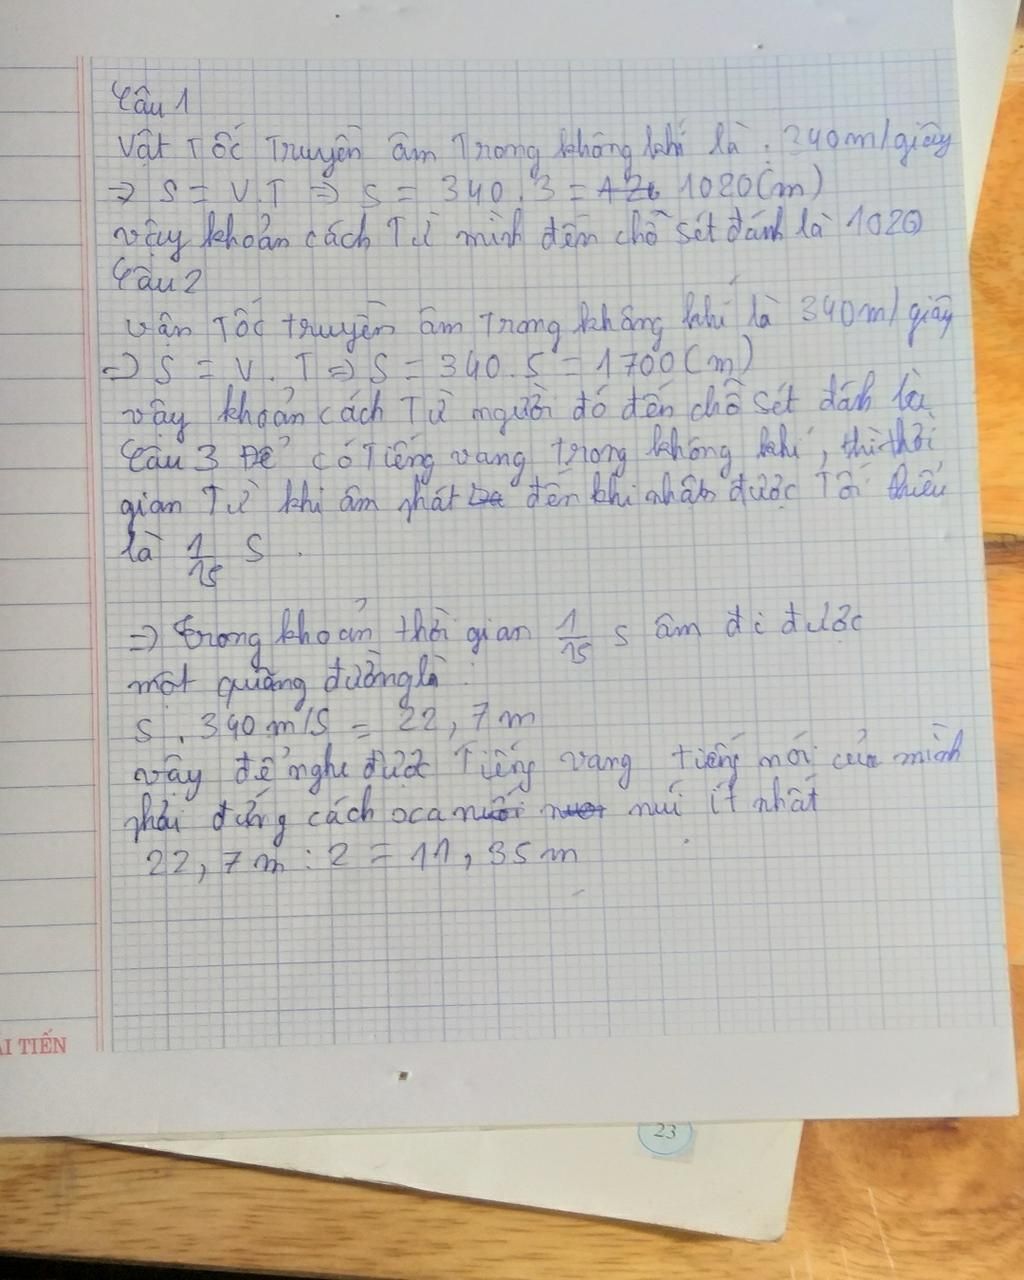 Câu 1
Vật Tốc Truyền âm Trong không khí là : 340m/giây
=> S = V.T => S = 340.3 = 1020(m)
vậy khoản cách Từ mình đến chỗ sét đánh là 1020
Câu 2
vận Tốc truyền âm Trong không khí là 340m/giây
=> S = V.T => S = 340.5 = 1700(m)
vậy khoản cách Từ người đó đến chỗ sét đánh là
Câu 3 Để có Tiếng vang trong không khí, thì thời
gian Từ khi âm phát đến khi nhận được Tối thiểu
là 1/15 S .
=> Trong khoản thời gian 1/15 s âm đi được
một quãng đường là :
S . 340m/S = 22,7m
vậy để nghe được Tiếng vang tiếng nói của mình
phải đứng cách núi ít nhất
22,7m : 2 = 11,35m
ẢI TIẾN
23